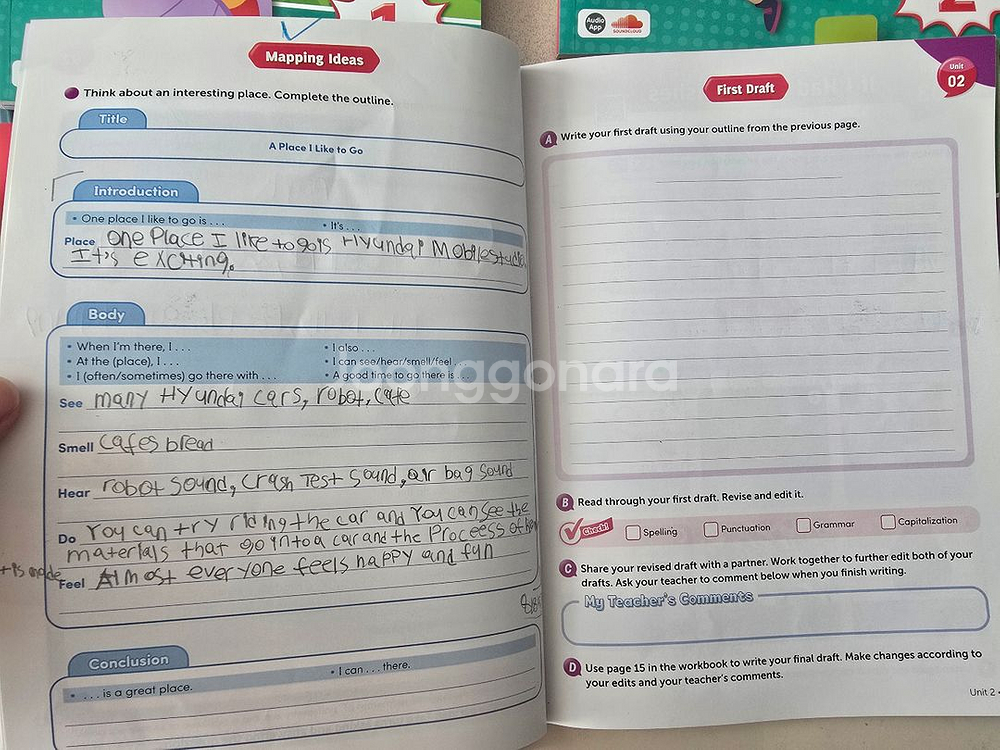 Audio App
SOUNDCLOUD
Mapping Ideas
Think about an interesting place. Complete the outline.
Title
A Place I Like to Go
Introduction
• One place I like to go is . . .
• It's . . .
Place One Place I like to go is Hyundai Mobilestudio
It's exciting.
Body
• When I'm there, I . . .
• I also . . .
• At the (place), I . . .
• I can see/hear/smell/feel . . .
• I (often/sometimes) go there with . . .
• A good time to go there is . . .
See many Hyundai cars, robot, cafe
Smell cafes bread
Hear robot sound, crash Test sound, air bag sound
Do You can try riding the car and You can see the
materials that go into a car and the Proceess of how
it is made
Feel Almost everyone feels happy and fun
Conclusion
• . . . is a great place.
• I can . . . there.
First Draft
Unit
02
A Write your first draft using your outline from the previous page.
B Read through your first draft. Revise and edit it.
Check!
Spelling
Punctuation
Grammar
Capitalization
C Share your revised draft with a partner. Work together to further edit both of your
drafts. Ask your teacher to comment below when you finish writing.
My Teacher's Comments
D Use page 15 in the workbook to write your final draft. Make changes according to
your edits and your teacher's comments.
Unit 2
bonggonara